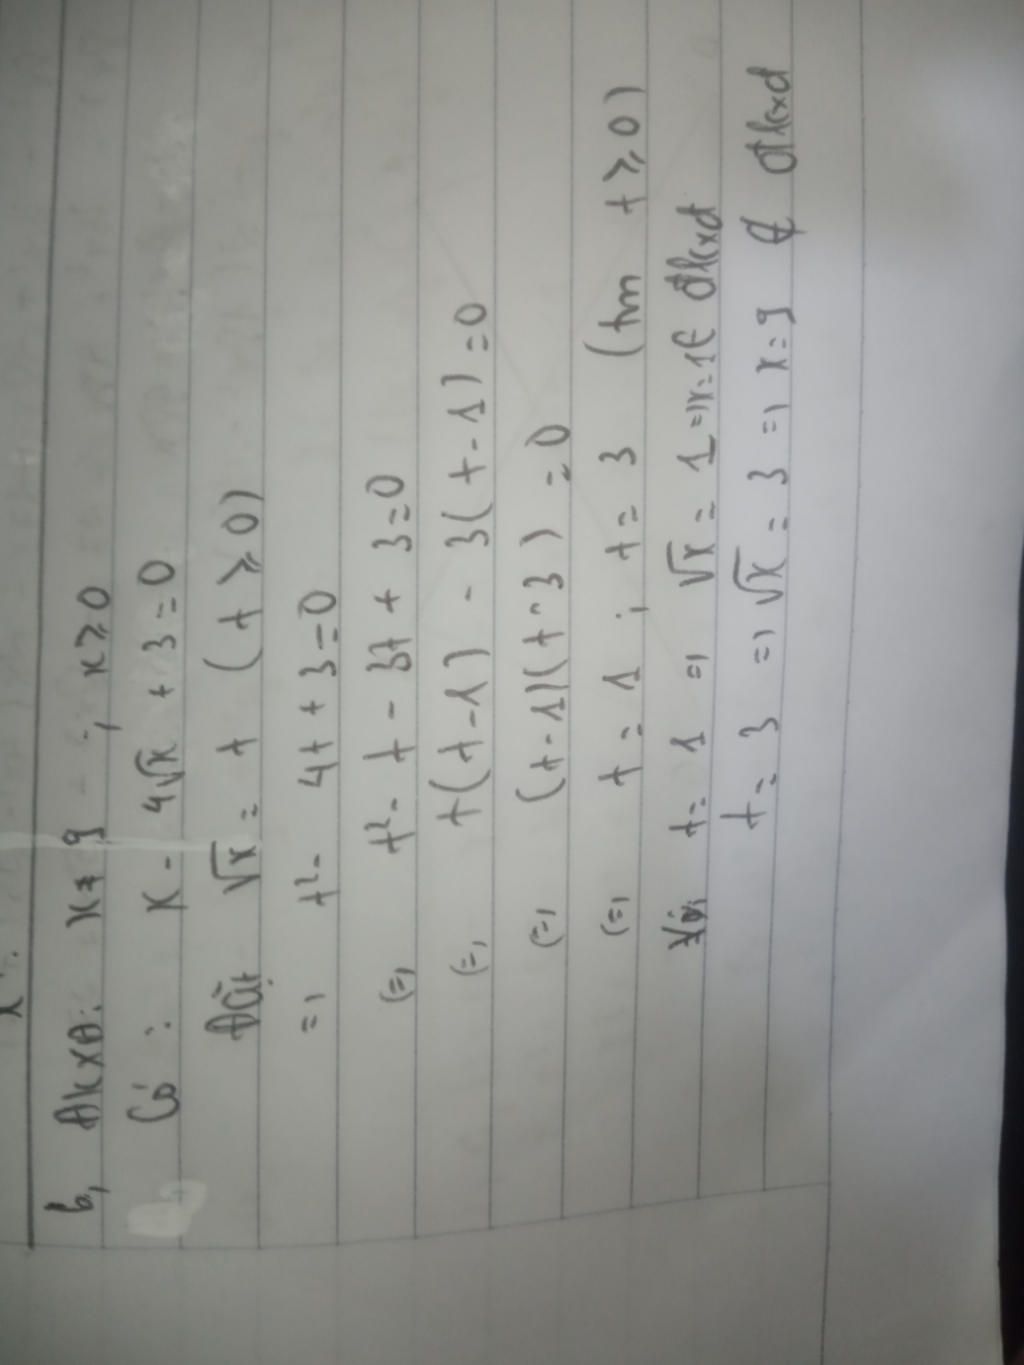 b, ĐKXĐ: x ≠ 9 ; x ≥ 0
Có : x - 4√x + 3 = 0
Đặt √x = t ( t ≥ 0 )
=> t² - 4t + 3 = 0
(=) t² - t - 3t + 3 = 0
(=) t(t - 1) - 3(t - 1) = 0
(=) (t - 1)(t - 3) = 0
(=) t = 1 ; t = 3 (tm t ≥ 0)
Với t = 1 => √x = 1 => x = 1 ∈ đkxđ
t = 3 => √x = 3 => x = 9 ∉ đkxđ